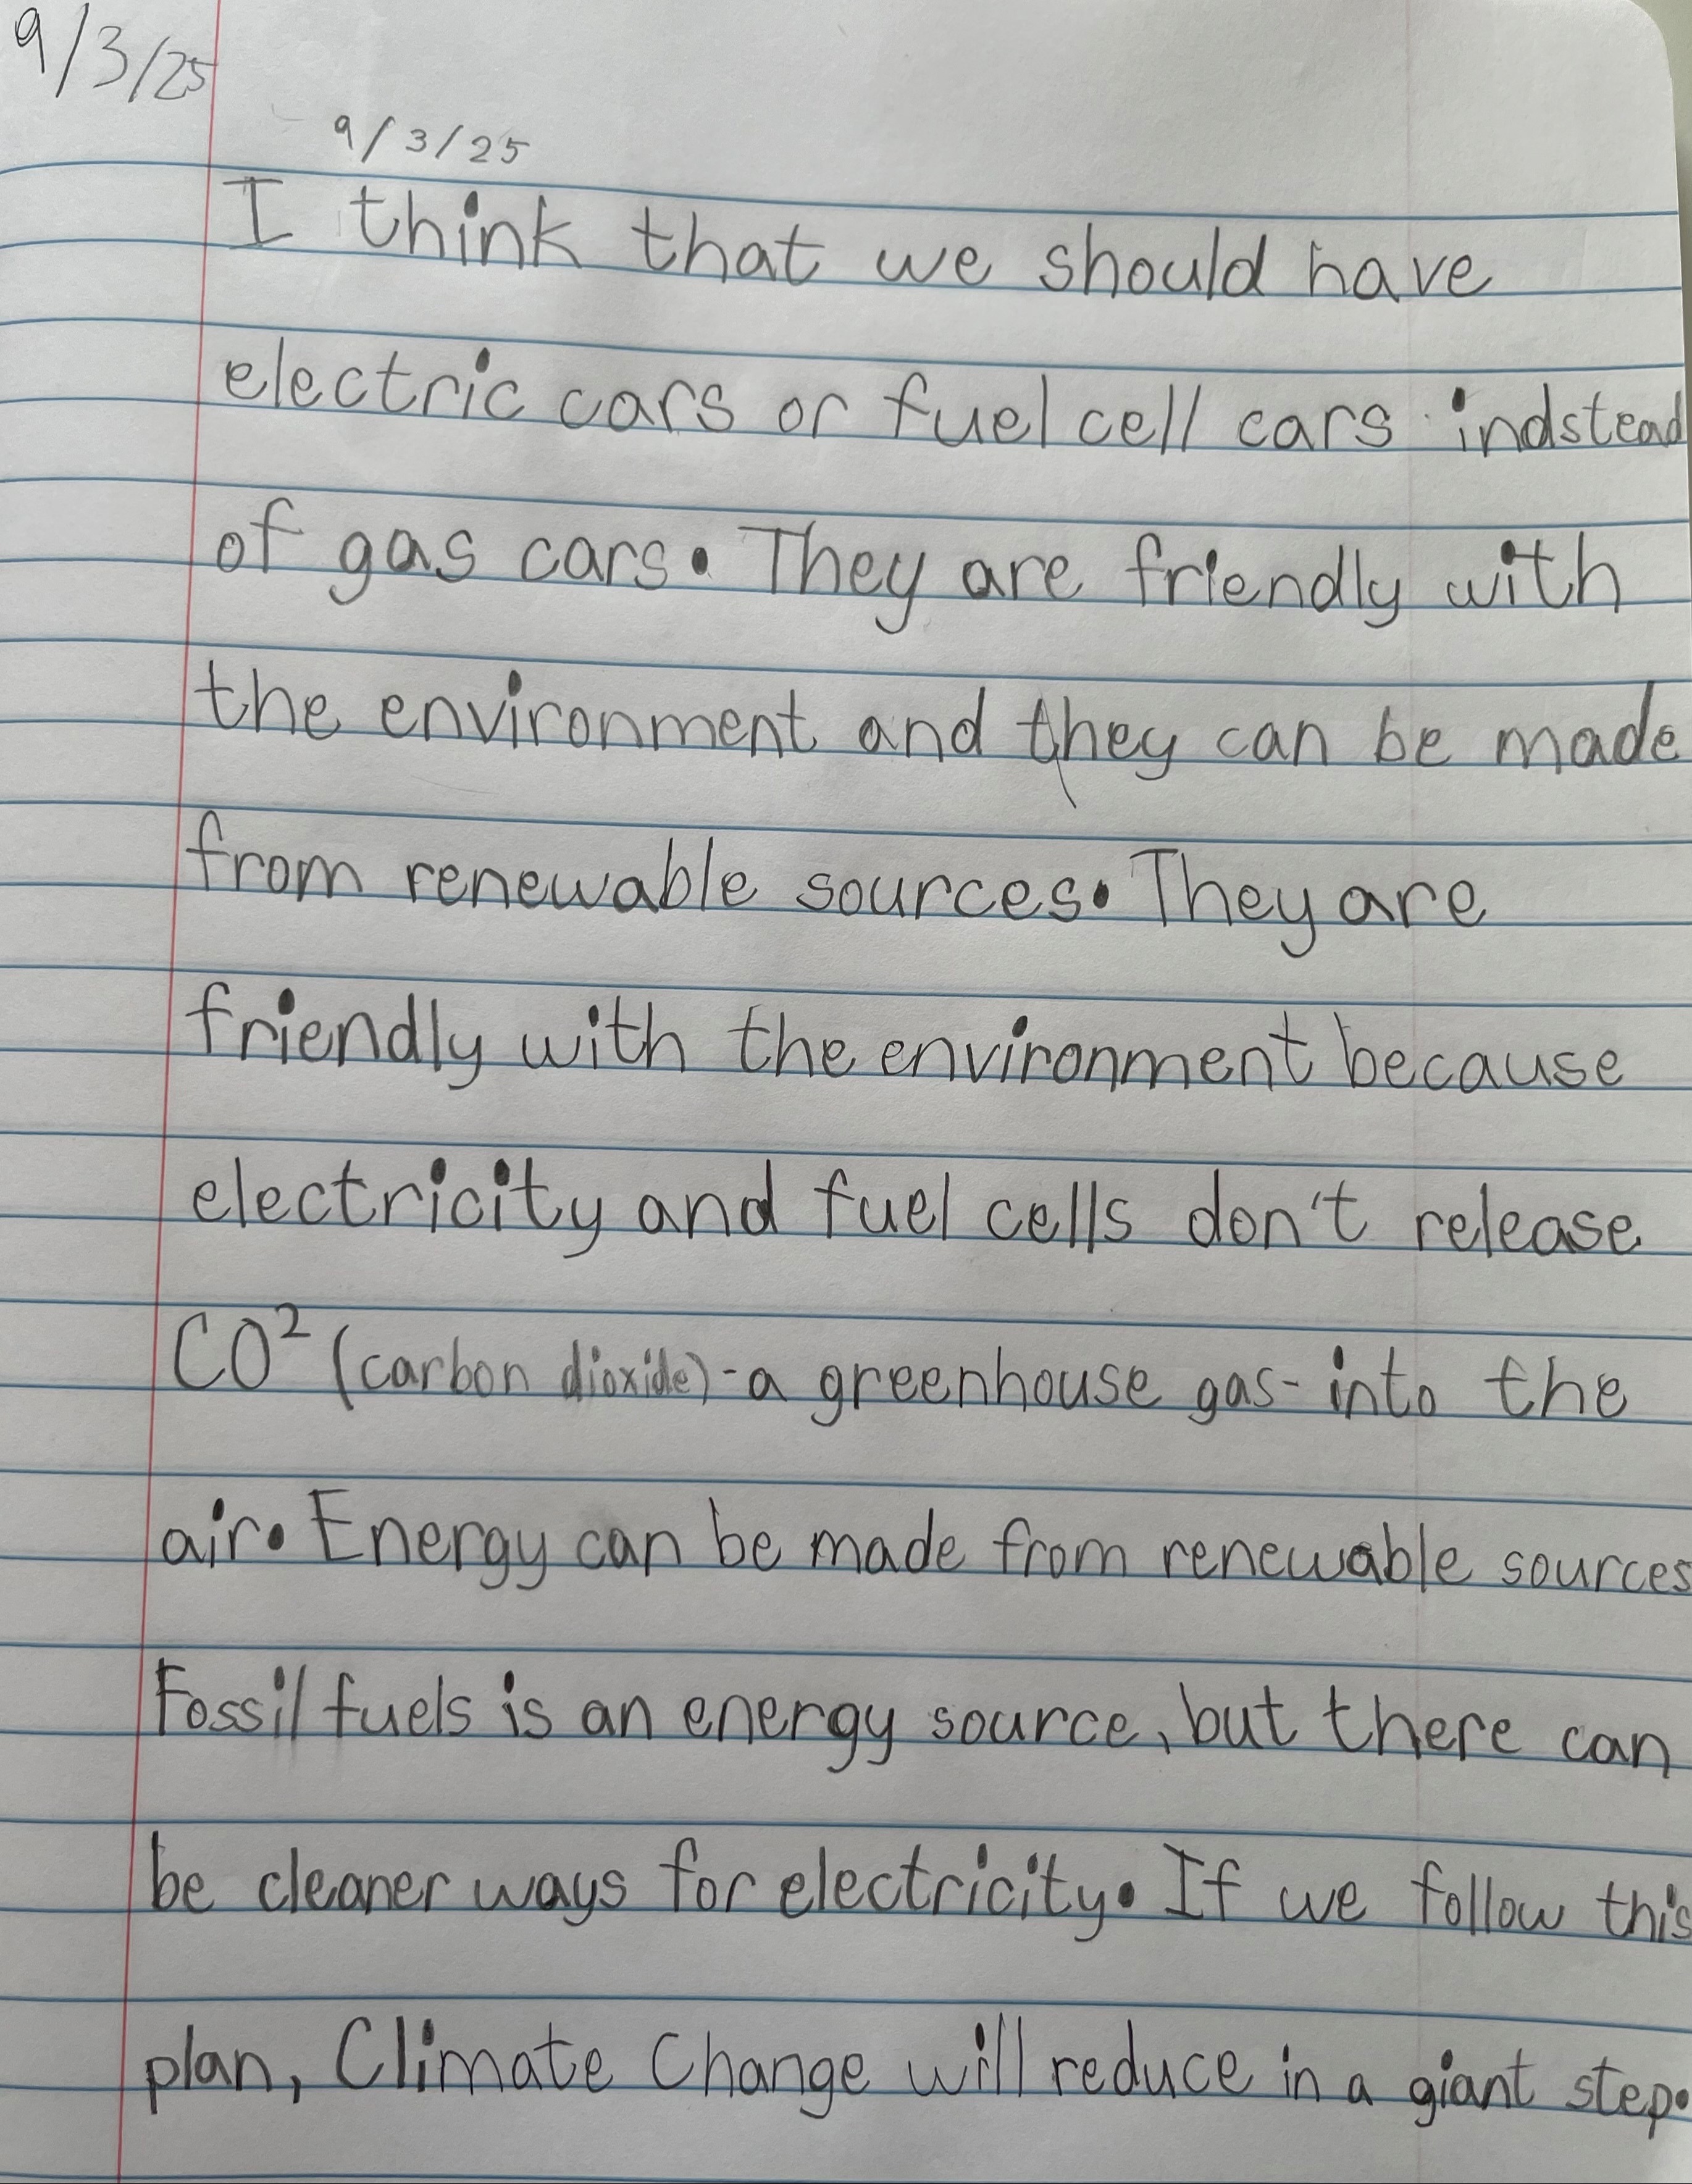 9/3/25
9/3/25
I think that we should have
electric cars or fuel cell cars indstead
of gas cars. They are friendly with
the environment and they can be made
from renewable sources. They are
friendly with the environment because
electricity and fuel cells don't release
CO² (carbon dioxide)-a greenhouse gas-into the
air. Energy can be made from renewable sources
Fossil fuels is an energy source, but there can
be cleaner ways for electricity. If we follow this
plan, Climate Change will reduce in a giant step.